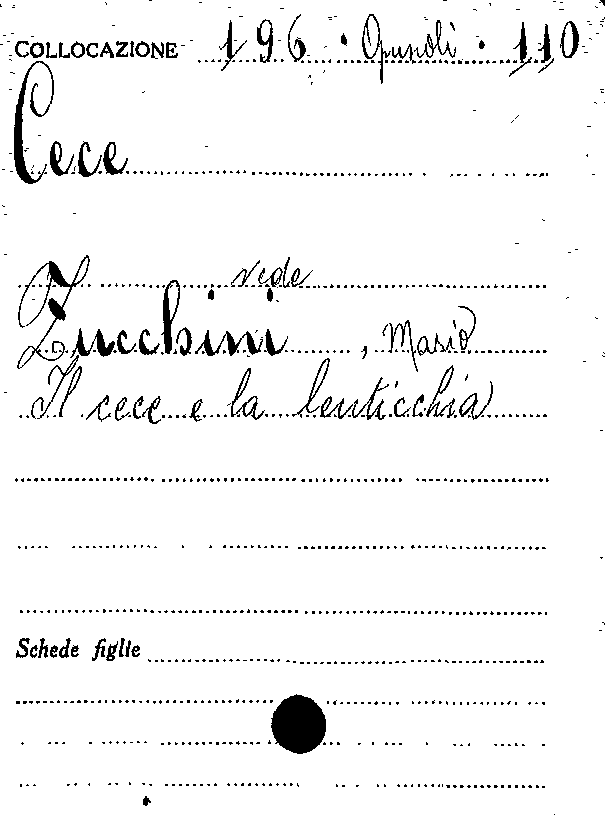 COLLOCAZIONE 196 · Opuscoli · 110
Cece
vede
Zucchini, Mario
Il cece e la lenticchia
Schede figlie